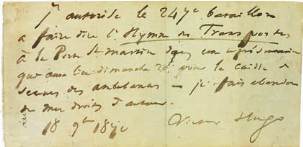 j'autorise le 247e bataillon
a faire dire l'Hymne des Transportés
à la Porte St-martin dans la représentation
que aura lieu dimanche 20 pour la caisse de
secours des ambulances — je fais abandon
de mes droits d'auteur.
18 9bre 1870 Victor Hugo